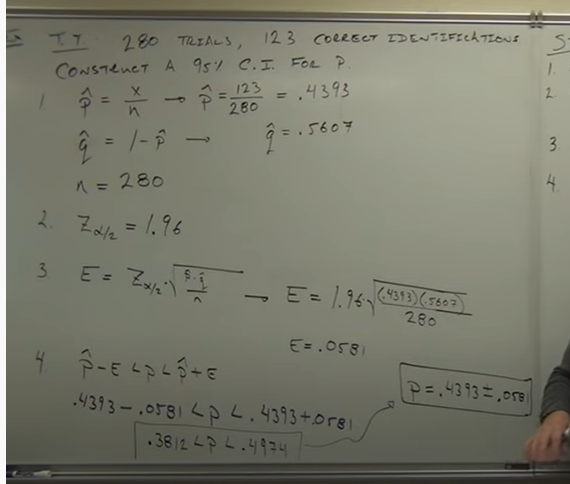 Ex T.T. 280 TRIALS, 123 CORRECT IDENTIFICATIONS
CONSTRUCT A 95% C.I. FOR P.
1 p̂ = x/n → p̂ = 123/280 = .4393
q̂ = 1 - p̂ → q̂ = .5607
n = 280
2. Zα/2 = 1.96
3 E = Zα/2 · √(p̂·q̂/n) → E = 1.96·√((.4393)(.5607)/280)
E = .0581
4 p̂ - E < p < p̂ + E
.4393 - .0581 < p < .4393 + .0581
.3812 < p < .4974
p = .4393 ± .0581
S
1.
2
3
4.